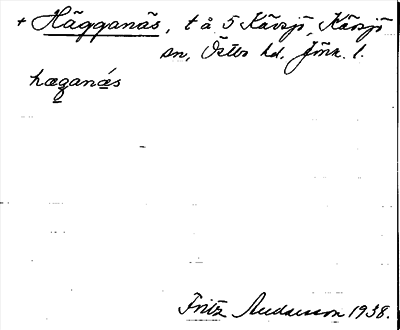 + Hägganäs, t å 5 Kävsjö, Kävsjö
sn, Östbo hd. Jönk. l.
hæganás
Fritz Andersson 1938.